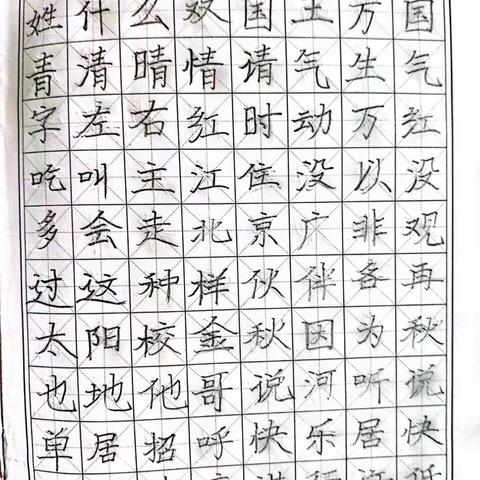 姓什么双国王方国
青清晴情请气生气
字左右红时动万红
吃叫主江住没以没
多会走北京广非观
过这种样伙伴各再
太阳校金秋因为秋
也地他哥说河听说
单居招呼快乐居快